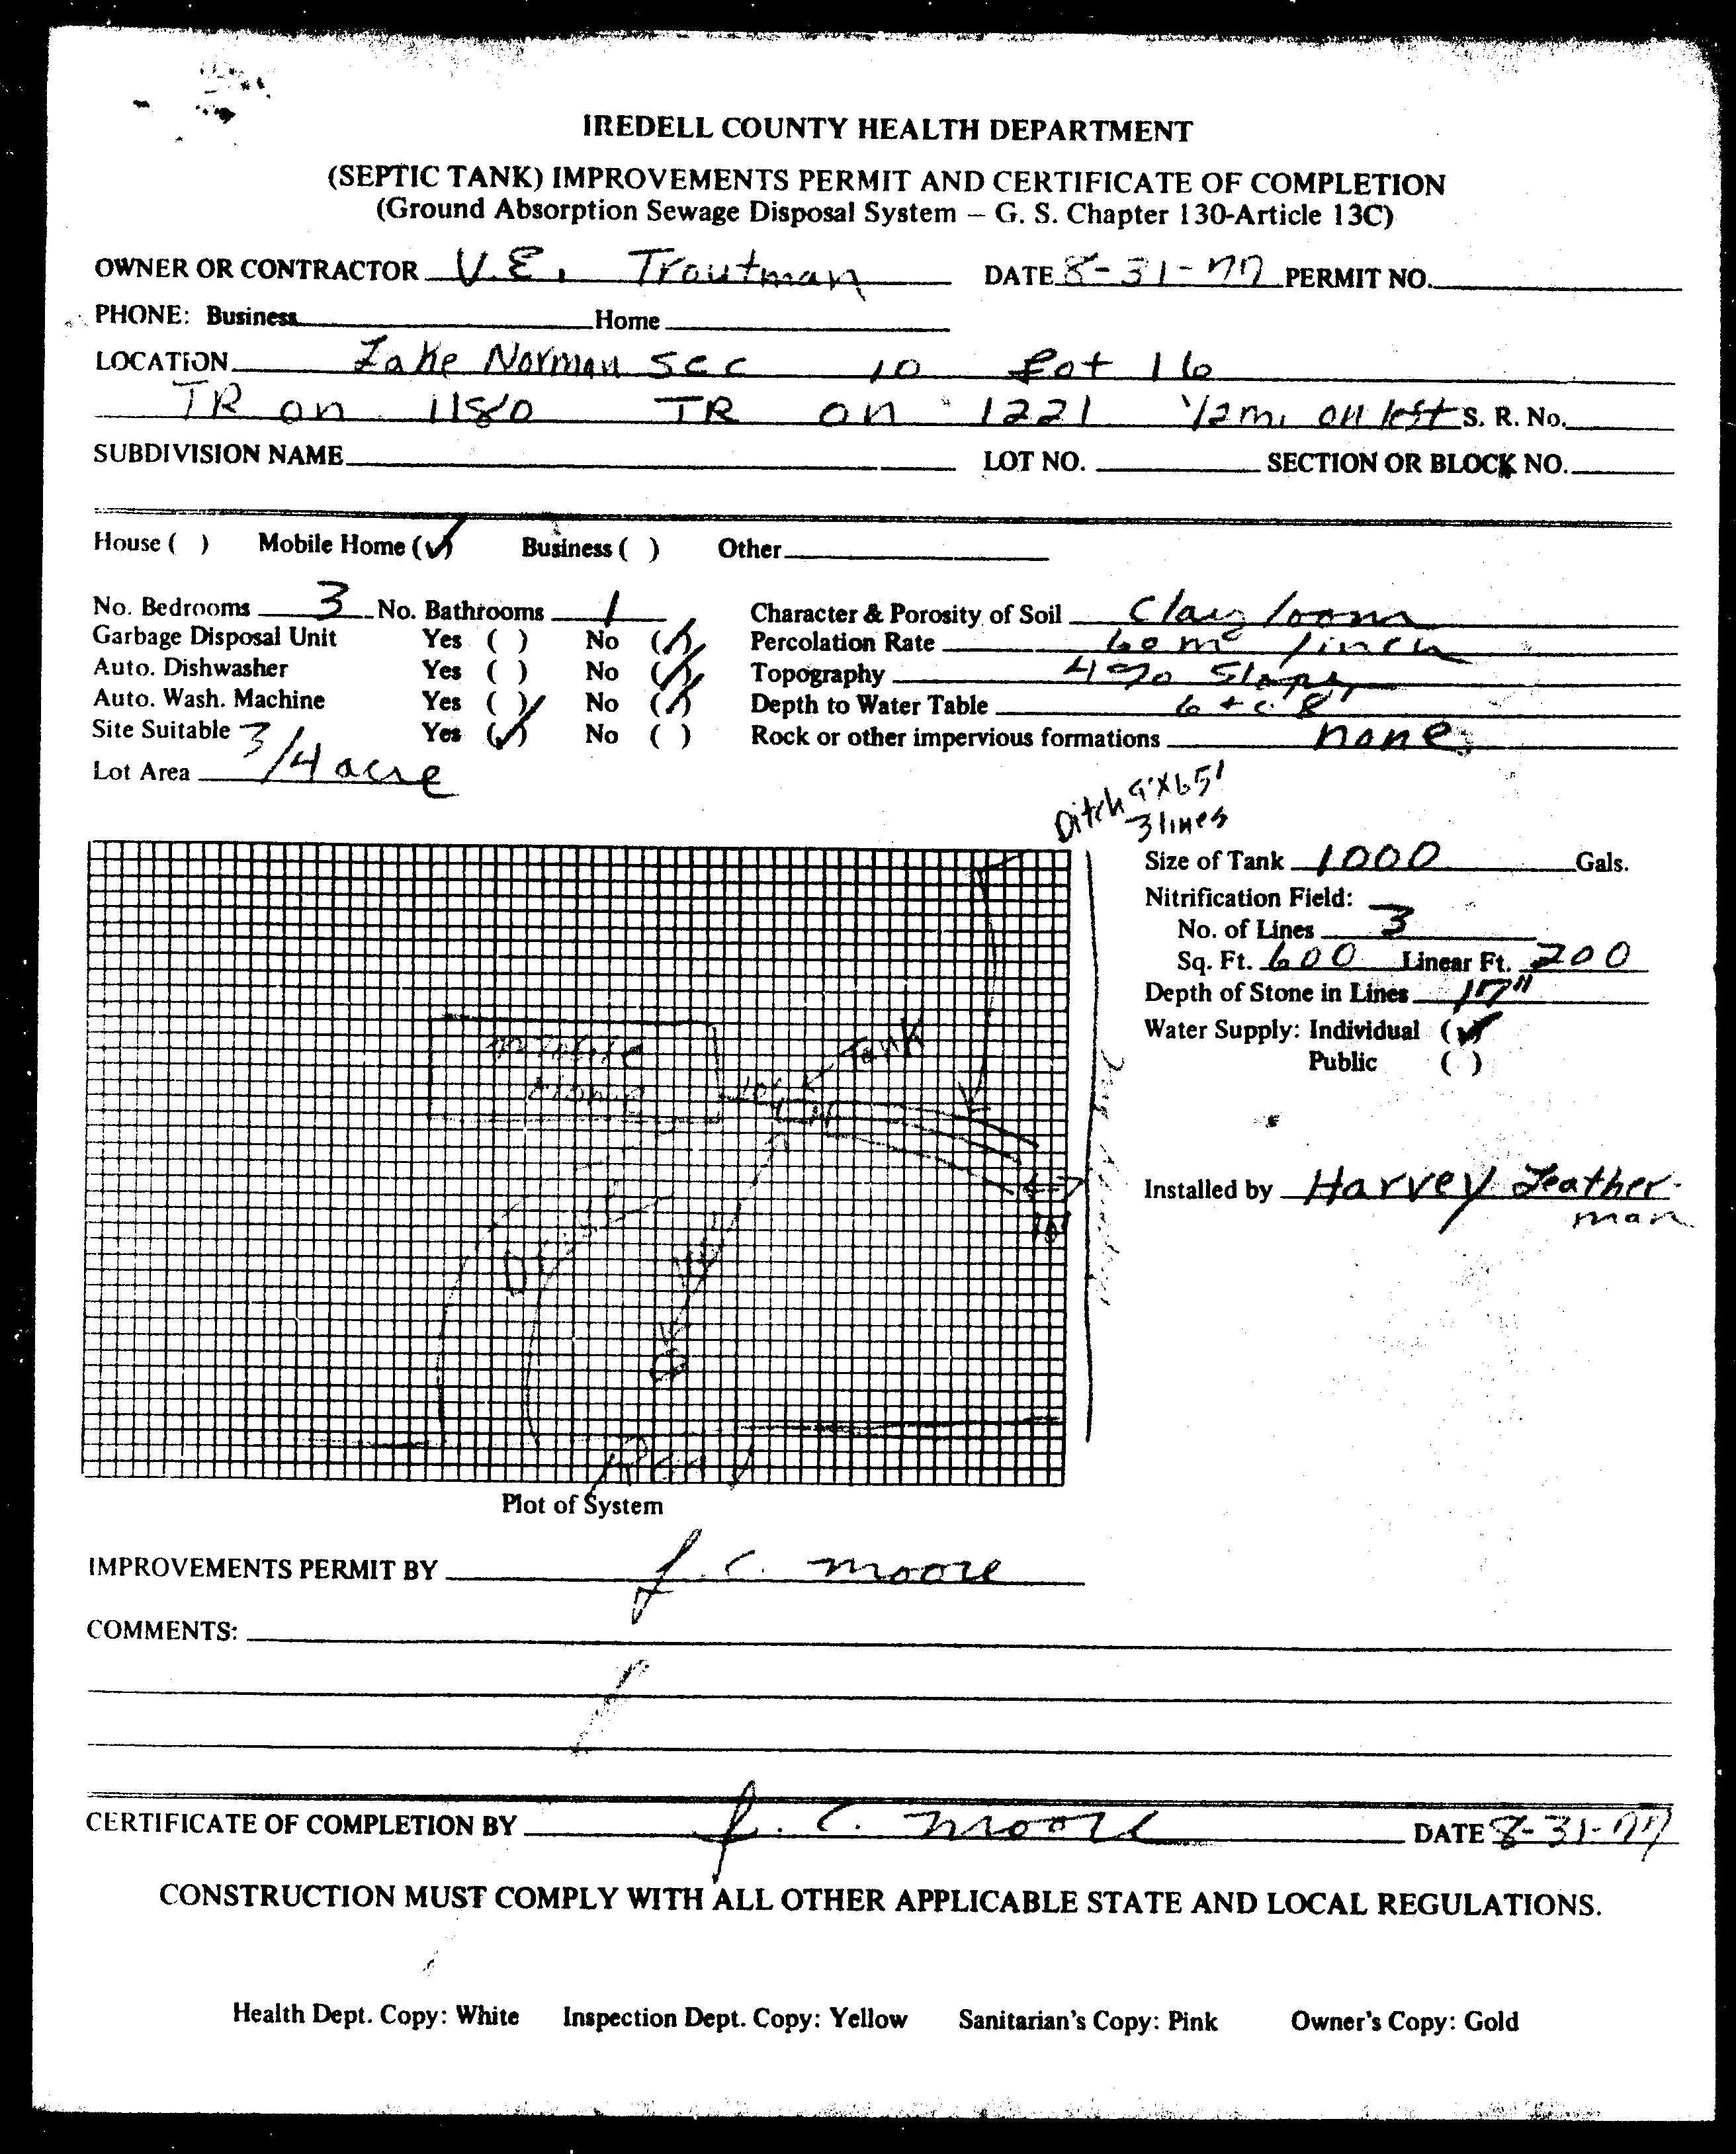 IREDELL COUNTY HEALTH DEPARTMENT
(SEPTIC TANK) IMPROVEMENTS PERMIT AND CERTIFICATE OF COMPLETION
(Ground Absorption Sewage Disposal System – G. S. Chapter 130-Article 13C)
OWNER OR CONTRACTOR V.E. Troutman DATE 8-31-77 PERMIT NO.
PHONE: Business Home
LOCATION Lake Norman Sec 10 Lot 16
TR on 1180 TR on 1221 1/2 mi on left S. R. No.
SUBDIVISION NAME LOT NO. SECTION OR BLOCK NO.
House ( ) Mobile Home (✓) Business ( ) Other
No. Bedrooms 3 No. Bathrooms 1 Character & Porosity of Soil Clay loam
Garbage Disposal Unit Yes ( ) No (✓) Percolation Rate 60 m /inch
Auto. Dishwasher Yes ( ) No (✓) Topography 4% Slope
Auto. Wash. Machine Yes ( ) No (✓) Depth to Water Table 6 to 8'
Site Suitable Yes (✓) No ( ) Rock or other impervious formations none
Lot Area 3/4 acre
Ditch X65'
3 lines
Size of Tank 1000 Gals.
Nitrification Field:
No. of Lines 3
Sq. Ft. 600 Linear Ft. 200
Depth of Stone in Lines 17"
Water Supply: Individual (✓)
Public ( )
Tank
Installed by Harvey Leather-
man
Road
Plot of System
IMPROVEMENTS PERMIT BY J. C. Moore
COMMENTS:
CERTIFICATE OF COMPLETION BY J. C. Moore DATE 8-31-77
CONSTRUCTION MUST COMPLY WITH ALL OTHER APPLICABLE STATE AND LOCAL REGULATIONS.
Health Dept. Copy: White Inspection Dept. Copy: Yellow Sanitarian's Copy: Pink Owner's Copy: Gold